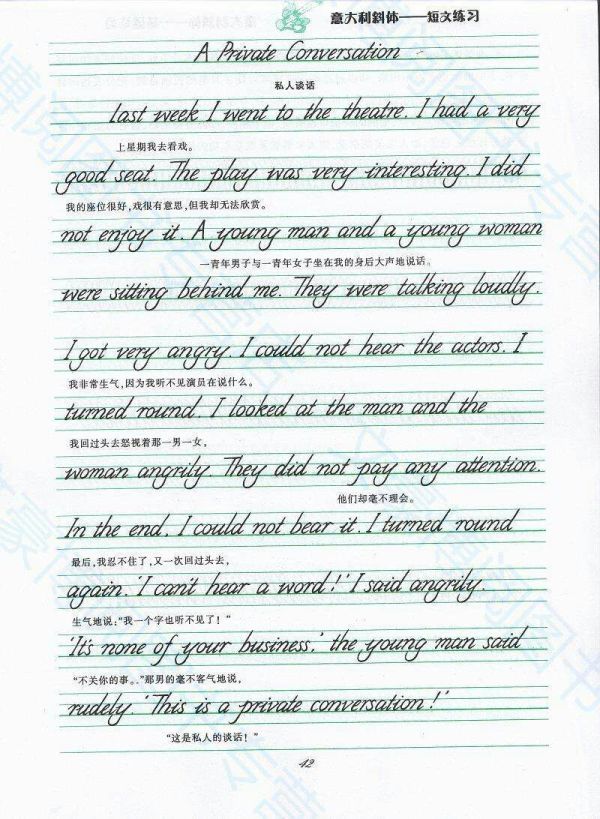 意大利斜体——短文练习
A Private Conversation
私人谈话
Last week I went to the theatre. I had a very
上星期我去看戏。
good seat. The play was very interesting. I did
我的座位很好,戏很有意思,但我却无法欣赏。
not enjoy it. A young man and a young woman
一青年男子与一青年女子坐在我的身后大声地说话。
were sitting behind me. They were talking loudly.
I got very angry. I could not hear the actors. I
我非常生气,因为我听不见演员在说什么。
turned round. I looked at the man and the
我回过头去怒视着那一男一女,
woman angrily. They did not pay any attention.
他们却毫不理会。
In the end, I could not bear it. I turned round
最后,我忍不住了,又一次回过头去,
again. 'I can't hear a word!' I said angrily.
生气地说:“我一个字也听不见了!”
'It's none of your business,' the young man said
“不关你的事。”那男的毫不客气地说,
rudely. 'This is a private conversation!'
“这是私人的谈话!”
42